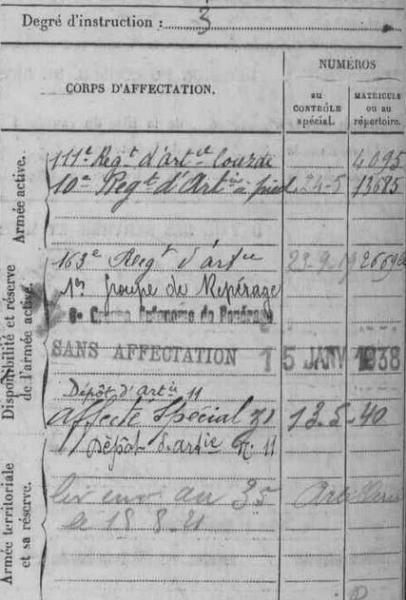 Degré d'instruction : 3
NUMÉROS
CORPS D'AFFECTATION.
au CONTRÔLE spécial.
MATRICULE ou au répertoire.
Armée active.
111e Regt d'artie lourde 4095
10e Regt d'Artie à pied 24-5 13685
Disponibilité et réserve de l'armée active.
163e Regt d'artie 23.9.19
1er Groupe de Repérage
Groupe Autonome de Repérage
SANS AFFECTATION 15 JANV 1938
Dépôt d'artie 11
affecté Spécial 13-5-40
Dépôt d'artie 11
Armée territoriale et sa réserve.
au 35